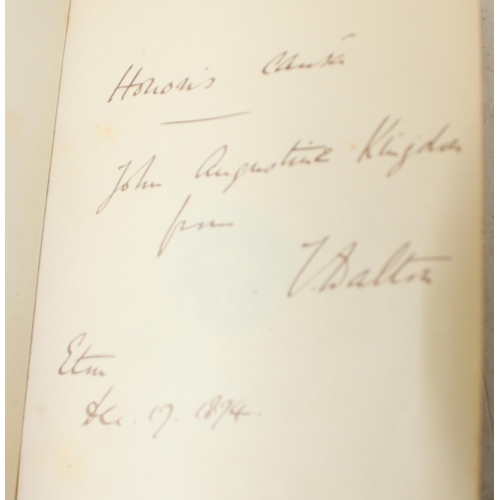 Honoris causâ
John Augustine Kingdon
from
T. Dalton
Eton
Dec. 17. 1874.